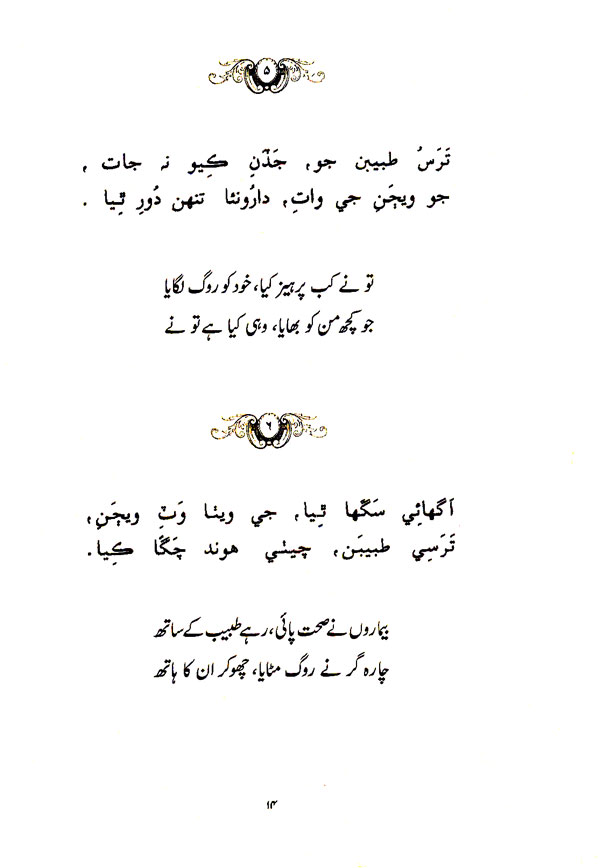 ۵
تَرَسُ طبيبن جو، جَڏَنِ ڪِيو نہ جات،
جو ويڄَنِ جي واتِ، دارُونئا تنهن دُورِ ٿِيا .
تو نے کب پرہیز کیا، خود کو روگ لگایا
جو کچھ من کو بھایا، وہی کیا ہے تو نے
۶
اَگهائِي سَگها ٿِيا، جي ويٺا وَٽِ ويڄَنِ،
تَرَسِي طبيبَن، چيٽي هوند چَڱا ڪِيا.
بیماروں نے صحت پائی، رہے طبیب کے ساتھ
چارہ گر نے روگ مٹایا، چھو کر ان کا ہاتھ
۱۴